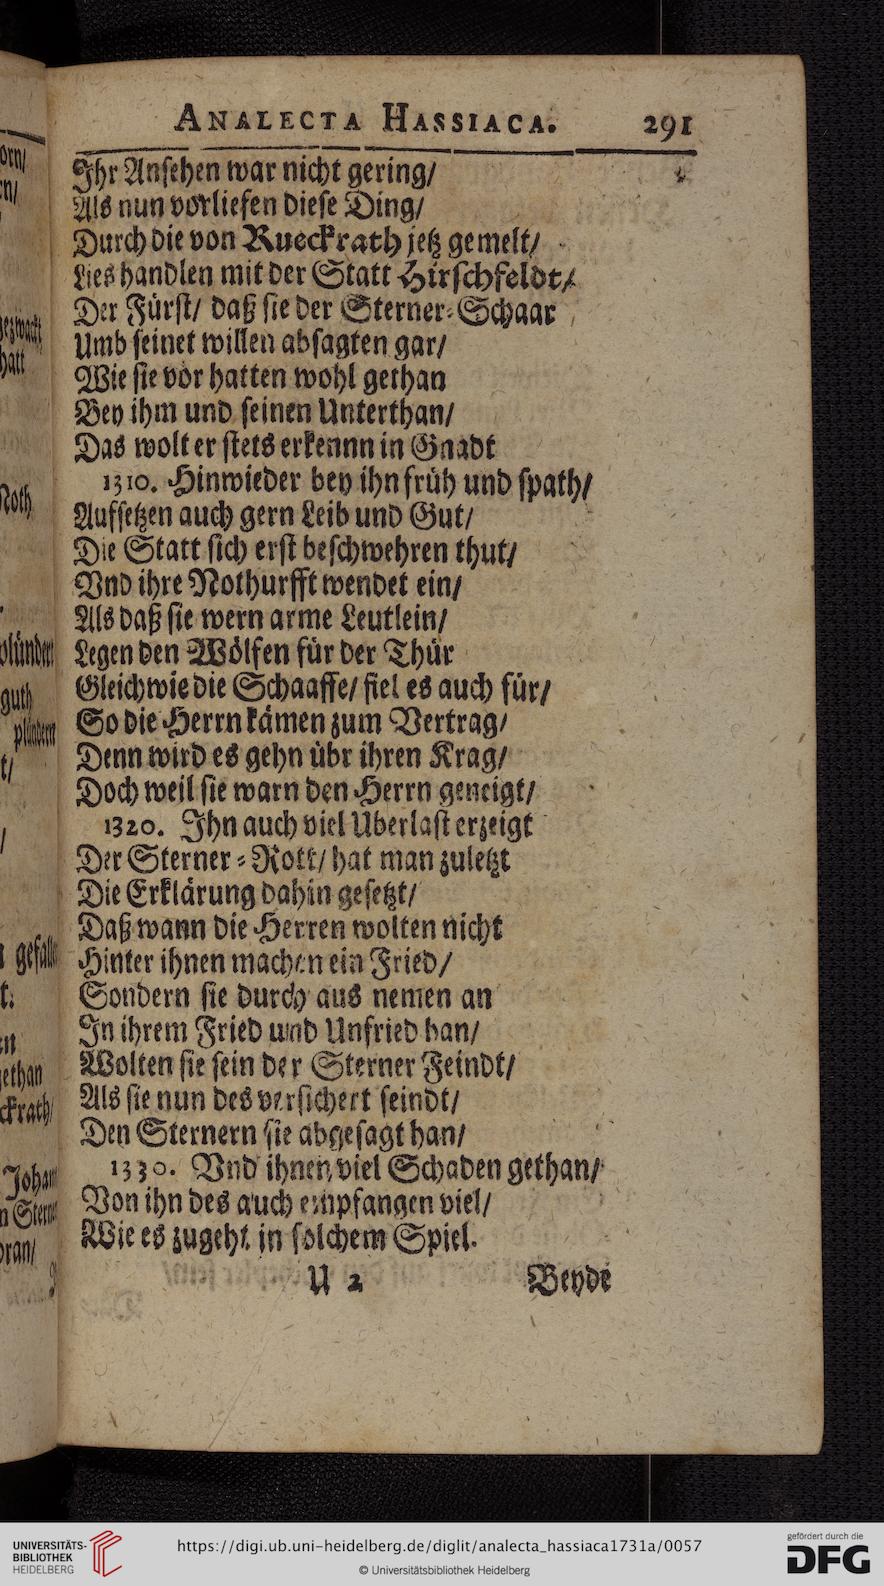 ANALECTA HASSIACA. 291
Ihr Ansehen war nicht gering/
Als nun vorliefen diese Ding/
Durch die von Rueckrath jetz gemelt/
Lies handlen mit der Statt Hirschfeldt/
Der Fürst/ daß sie der Sterner-Schaar
Umb seinet willen absagten gar/
Wie sie vor hatten wohl gethan
Bey ihm und seinen Unterthan/
Das wolt er stets erkennn in Gnadt
1310. Hinwieder bey ihn früh und spath/
Aufsetzen auch gern Leib und Gut/
Die Statt sich erst beschwehren thut/
Vnd ihre Nothurfft wendet ein/
Als daß sie wern arme Leutlein/
Legen den Wölfen für der Thür
Gleichwie die Schaaffe/ fiel es auch für/
So die Herrn kämen zum Vertrag/
Denn wird es gehn übr ihren Krag/
Doch weil sie warn den Herrn geneigt/
1320. Ihn auch viel Uberlast erzeigt
Der Sterner-Rott/ hat man zuletzt
Die Erklärung dahin gesetzt/
Daß wann die Herren wolten nicht
Hinter ihnen machen ein Fried/
Sondern sie durch aus nemen an
In ihrem Fried und Unfried han/
Wolten sie sein der Sterner Feindt/
Als sie nun des versichert seindt/
Den Sternern sie abgesagt han/
1330. Vnd ihnen viel Schaden gethan/
Von ihn des auch empfangen viel/
Wie es zugeht in solchem Spiel.
U 2 Beyde
UNIVERSITÄTS-
BIBLIOTHEK
HEIDELBERG
https://digi.ub.uni-heidelberg.de/diglit/analecta_hassiaca1731a/0057
© Universitätsbibliothek Heidelberg
gefördert durch die
DFG